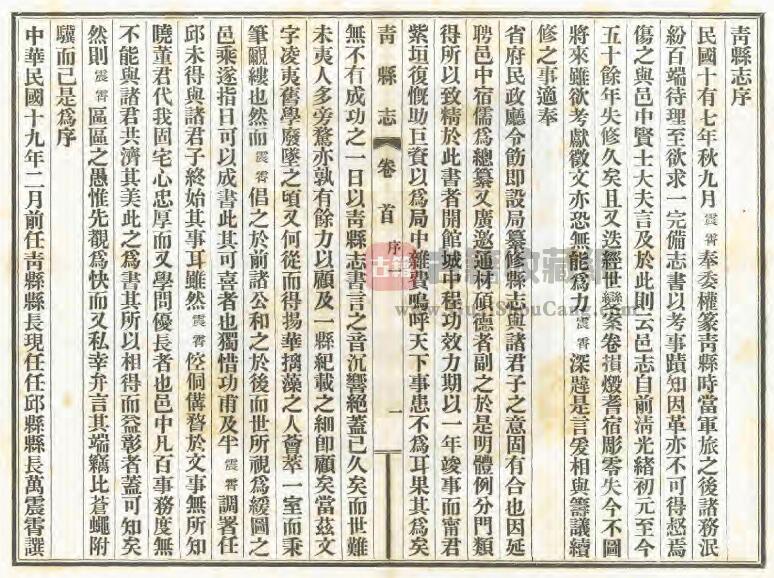 靑縣志序
民國十有七年秋九月震霄奉委權篆靑縣時當軍旅之後諸務泯
紛百端待理至欲求一完備志書以考事蹟知因革亦不可得惄焉
傷之與邑中賢士大夫言及於此則云邑志自前淸光緒初元至今
五十餘年失修久矣且又迭經世變案卷損燬耆宿彫零失今不圖
將來雖欲考獻徵文亦恐無能爲力震霄深韙是言爰相與籌議續
修之事適奉
省府民政廳令飭卽設局纂修縣志與諸君子之意固有合也因延
聘邑中宿儒爲總纂又廣邀通材碩德者副之於是明體例分門類
得所以致精於此書者開館城中程功效力期以一年竣事而甯君
紫垣復慨助巨資以爲局中雜費嗚呼天下事患不爲耳果其爲矣
靑縣志
卷首
序
一
無不有成功之一日以靑縣志書言之音沉響絕蓋已久矣而世難
未夷人多旁騖亦孰有餘力以顧及一縣紀載之細卽顧矣當茲文
字凌夷舊學廢墜之頃又何從而得揚華摛藻之人薈萃一室而秉
筆覼縷也然而震霄倡之於前諸公和之於後而世所視爲緩圖之
邑乘遂指日可以成書此其可喜者也獨惜功甫及半震霄調署任
邱未得與諸君子終始其事耳雖然震霄倥侗儕瞀於文事無所知
曉董君代我固宅心忠厚而又學問優長者也邑中凡百事務度無
不能與諸君共濟其美此之爲書其所以相得而益彰者蓋可知矣
然則震霄區區之愚惟先覩爲快而又私幸弁言其端竊比蒼蠅附
驥而已是爲序
中華民國十九年二月前任靑縣縣長現任任邱縣縣長萬震霄譔
古籍